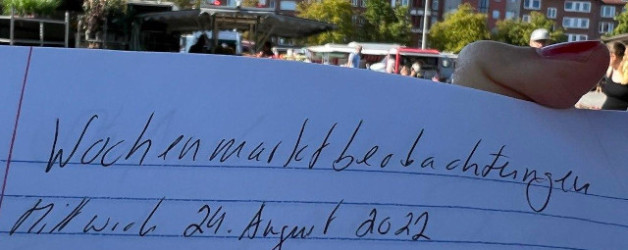 Wochenmarktbeobachtungen
Mittwoch 24. August 2022